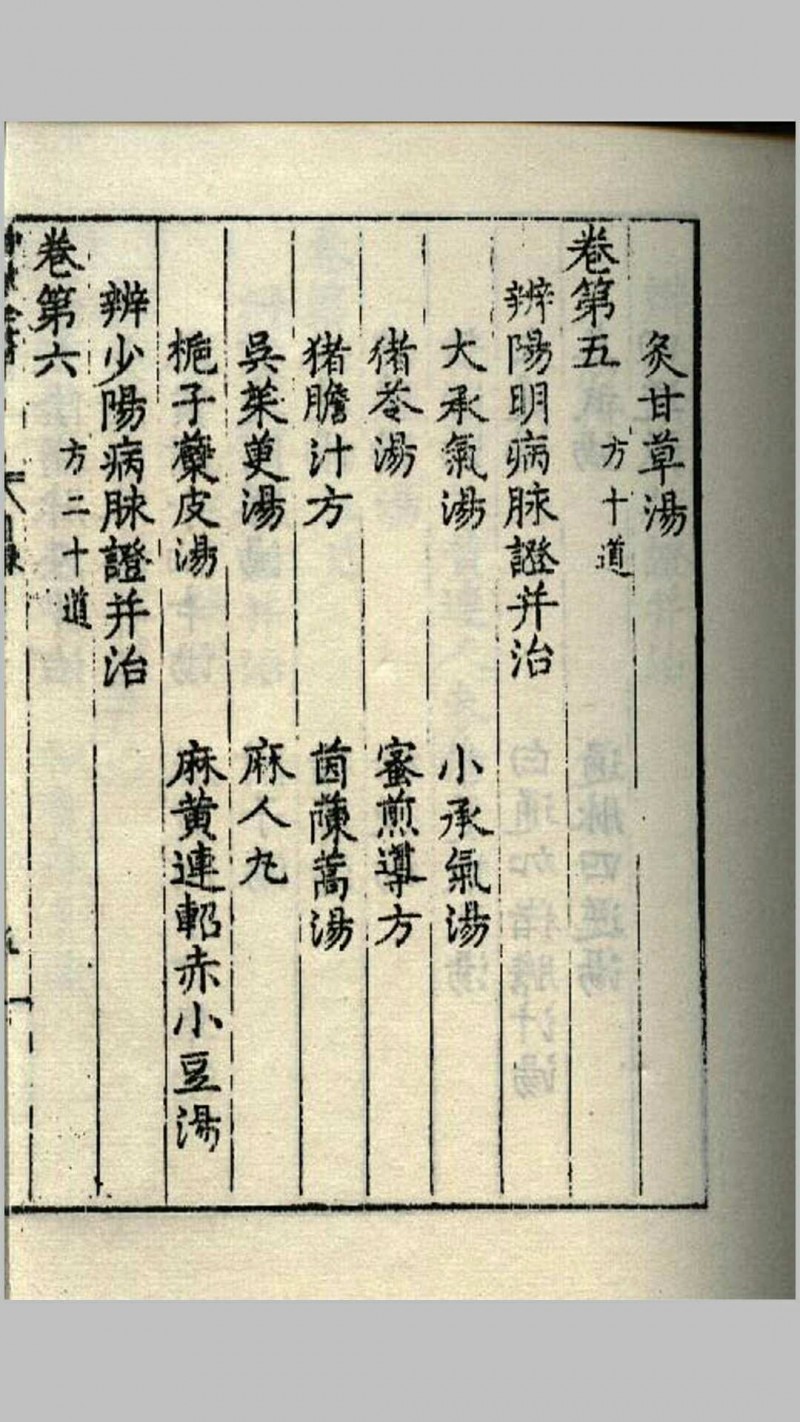 炙甘草湯
卷第五 方十道
辨陽明病脉證并治
大承氣湯 小承氣湯
猪苓湯 蜜煎導方
猪膽汁方 茵蔯蒿湯
吳茱萸湯 麻人丸
梔子蘗皮湯 麻黃連軺赤小豆湯
辨少陽病脉證并治
卷第六 方二十道